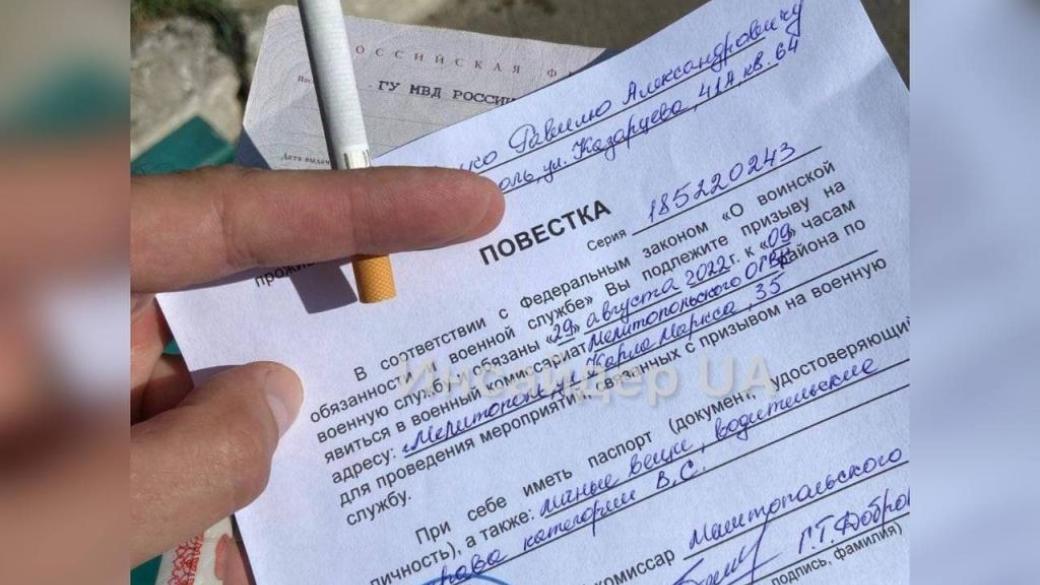 РОССИЙСКАЯ Ф
ГУ МВД РОССИИ
Дата выдач
ко Равилю Александровичу
оль, ул. Казарцева, 41А кв. 64
прожи
ПОВЕСТКА
Серия 185220243
В соответствии с Федеральным законом «О воинской
обязанности и военной службе» Вы подлежите призыву на
военную службу и обязаны «29» августа 2022г. к «09» часам
явиться в военный комиссариат Мелитопольского ОГВР района по
адресу: г. Мелитополь, Карла Маркса, 35
для проведения мероприятий, связанных с призывом на военную
службу.
При себе иметь паспорт (документ, удостоверяющий
личность), а также: личные вещи, водительские
права категории В.С.
комиссар Мелитопольского
Г.Т. Добров
подпись, фамилия)
Инсайдер UA